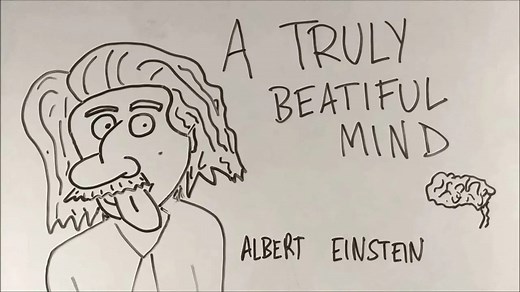 A TRULY
BEATIFUL
MIND
ALBERT EINSTEIN